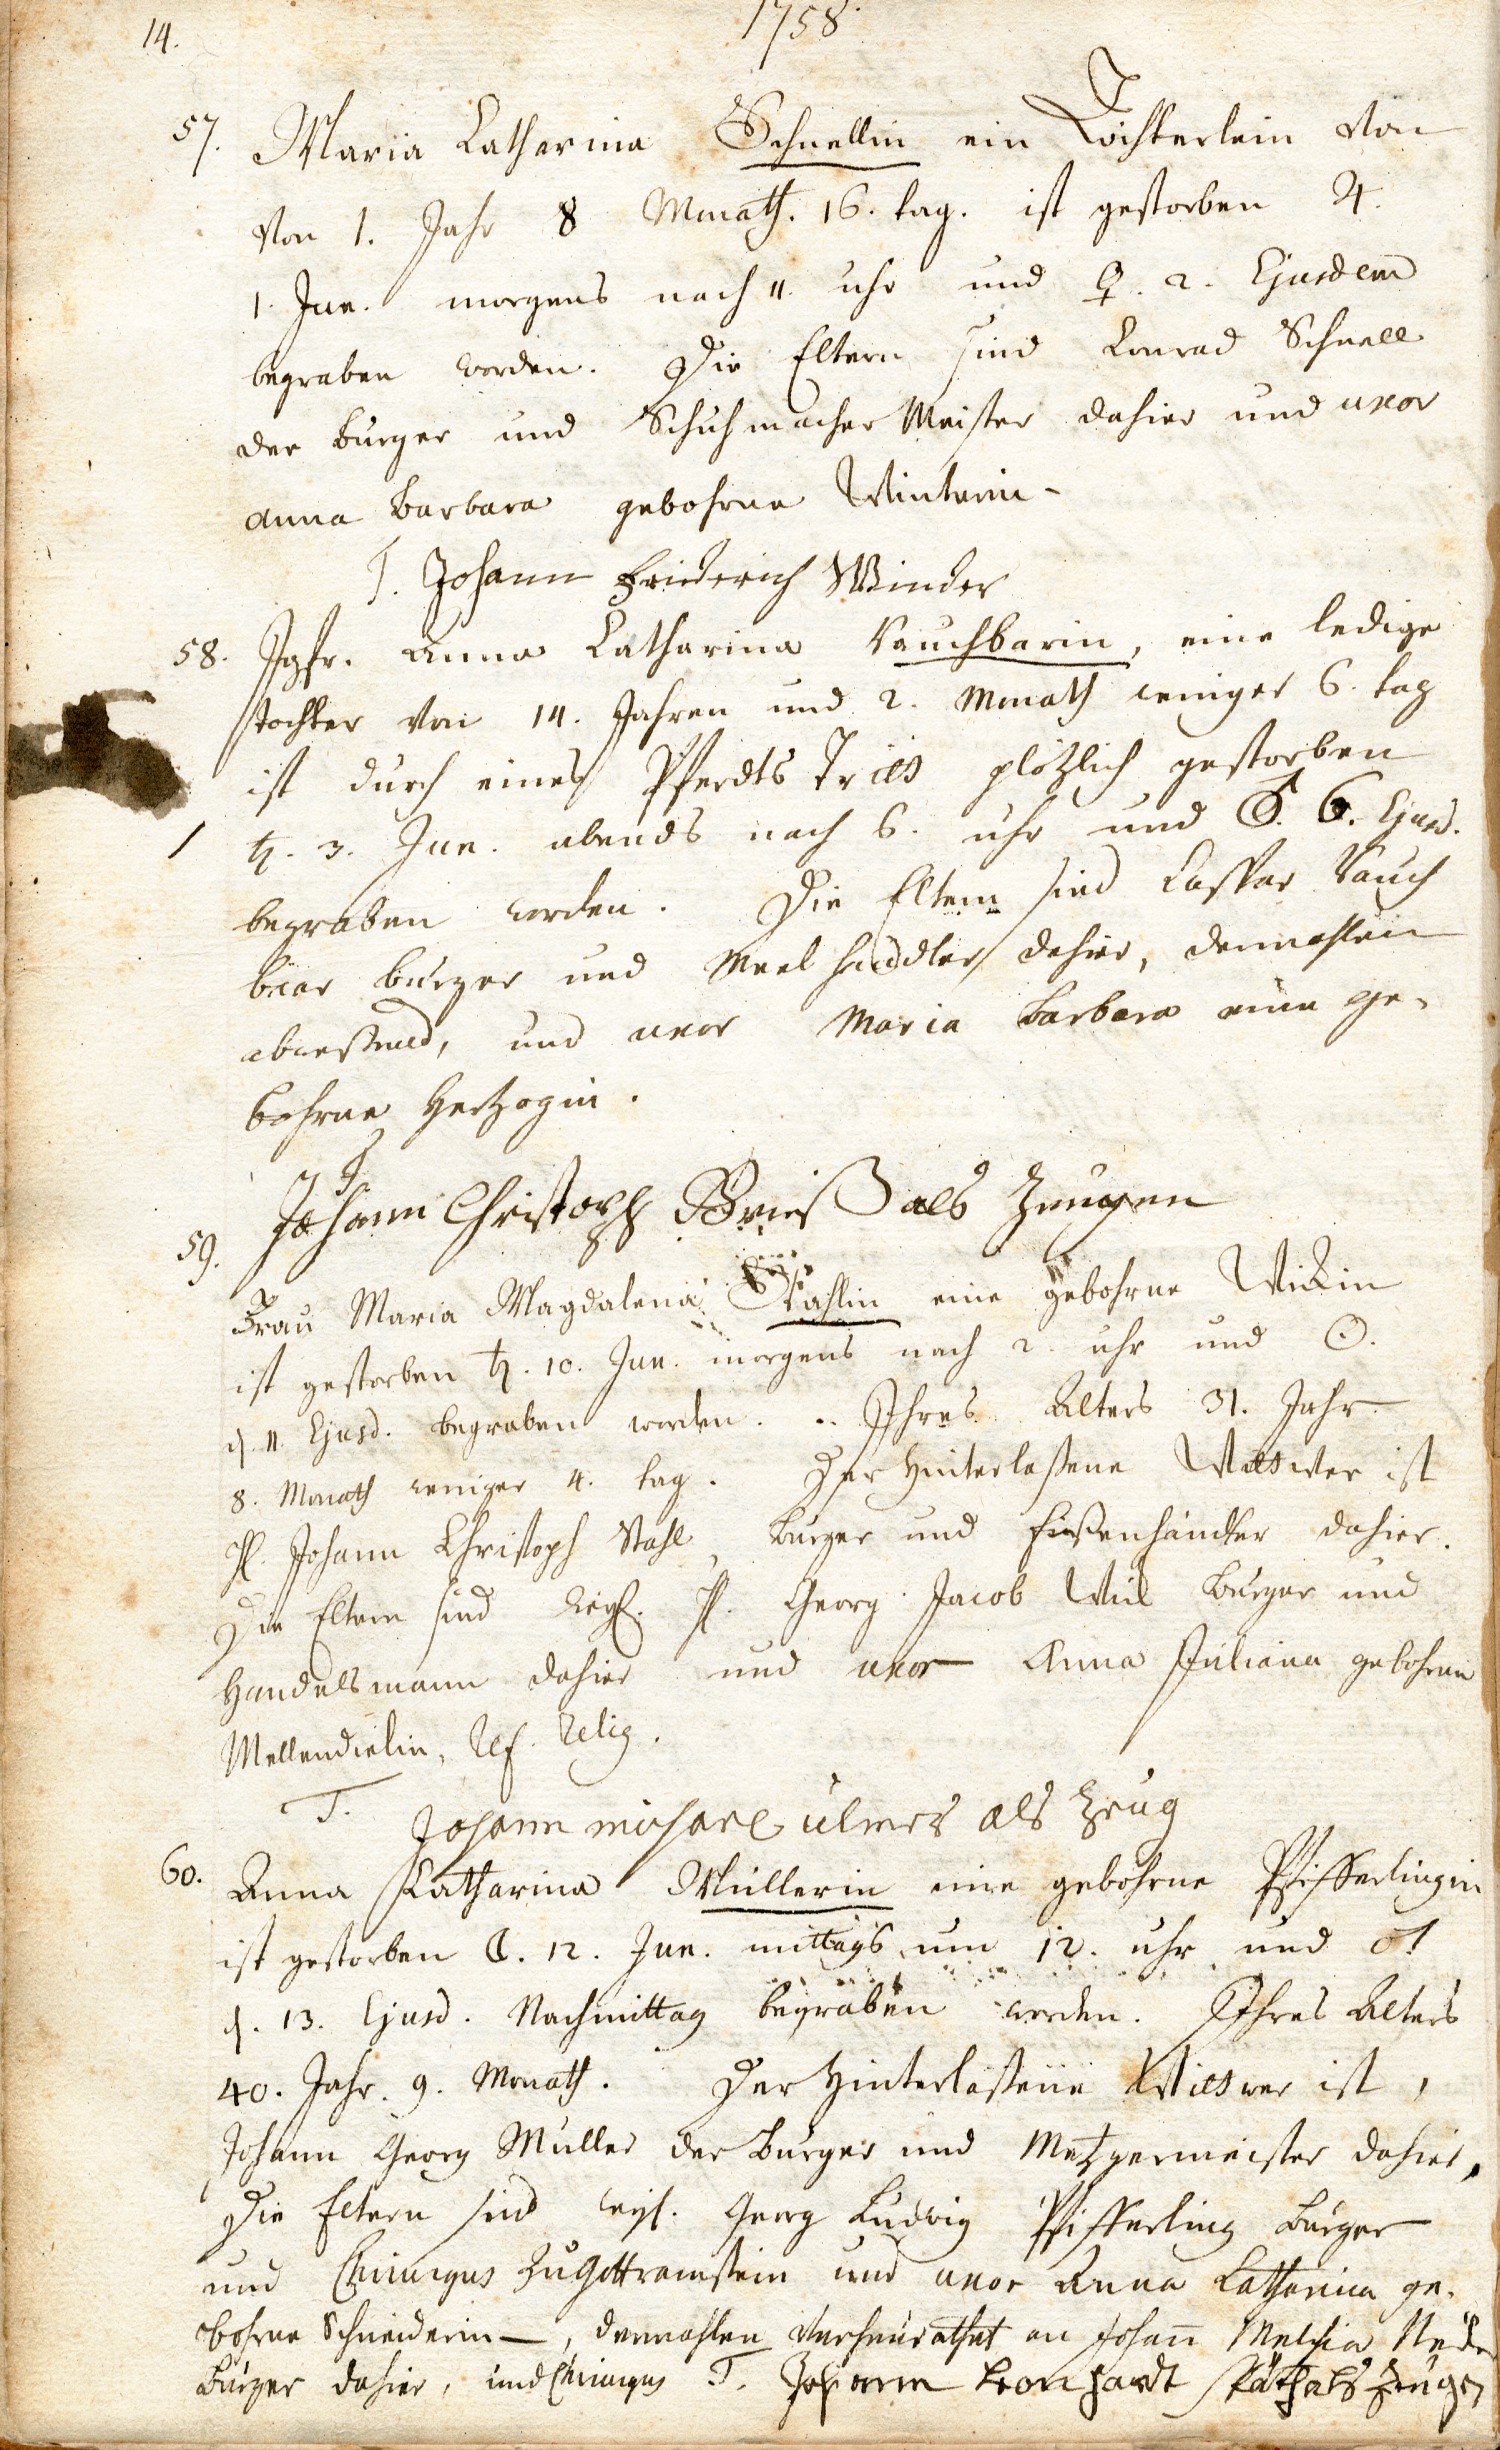 14.
1758.
57. Maria Catharina Schnellin ein Töchterlein von
von 1. Jahr 8 Monath. 16. tag. ist gestorben ♃.
1. Jun. morgens nach 11. uhr und ♀. 2. Ejusdem
begraben worden. Die Eltern sind Conrad Schnell
der burger und Schuhmacher Meister dahier und uxor
Anna Barbara gebohrne Winterin.
T. Johann Friderich Winder
58. Jgfr. Anna Catharina Vauchbarin, eine ledige
tochter von 14. Jahren und 2. Monath weniger 6. tag
ist durch eines Pferdts Tritt plötzlich gestorben
♄. 3. Jun. abends nach 6. uhr und ♂. 6. Ejusd.
begraben worden. Die Eltern sind Caspar Vauch
bar burger und Meel händler dahier, dermahlen
abweßend, und uxor Maria Barbara eine ge-
bohrne Hertzogin.
T
Johann Christoph Brieß als Zeugen
59.
Frau Maria Magdalena Stahlin eine gebohrne Wickin
ist gestorben ♄. 10. Jun. morgens nach 2. uhr und ☉.
d. 11. Ejusd. begraben worden. Ihres Alters 31. Jahr
8. Monath weniger 4. tag. Der Hinterlaßene Wittwer ist
H. Johann Christoph Stahl, burger und Eißenhändler dahier.
Die Eltern sind weyl. H. Georg Jacob Wick burger und
Handelsmann dahier und uxor Anna Juliana gebohrne
Mellendielin, Ref. Relig.
T. Johann michael ulmer als Zeug
60. Anna Catharina Müllerin eine gebohrne Pfifferlingin
ist gestorben ☾. 12. Jun. mittags um 12. uhr und ♂
d. 13. Ejusd. Nachmittag begraben worden. Ihres Alters
40. Jahr. 9. Monath. Der Hinterlaßene Wittwer ist,
Johann Georg Müller der burger und Metzgermeister dahier,
Die Eltern sind weyl. Georg Ludwig Pfifferling burger
und Chirurgus zu Gottramstein und uxor Anna Catharina ge-
bohrne Schneiderin, dermahlen verheurathet an Johann Melchior
burger dahier, und Chirurgus T. Johann Leonhardt Späth als Zeugen